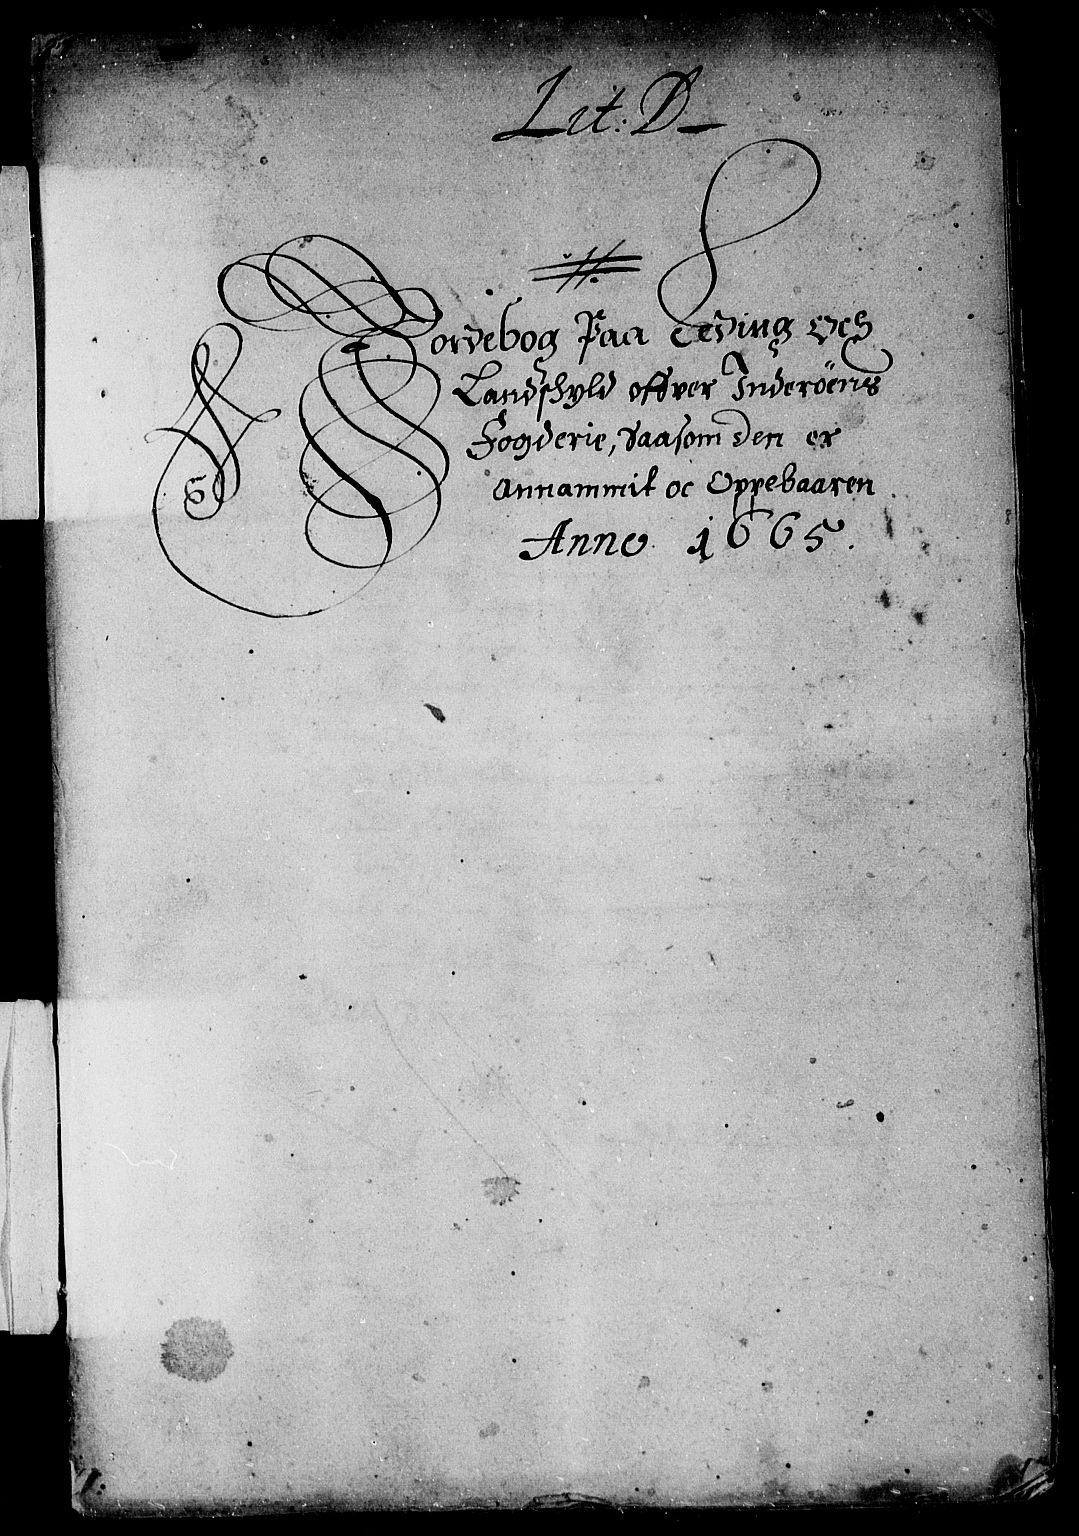 Lit: D
Jordebog Paa Leding och
Landschyld offver Inderöens
Fogderie, Saasom den er
annammit oc Oppebaaren
Anno 1665.